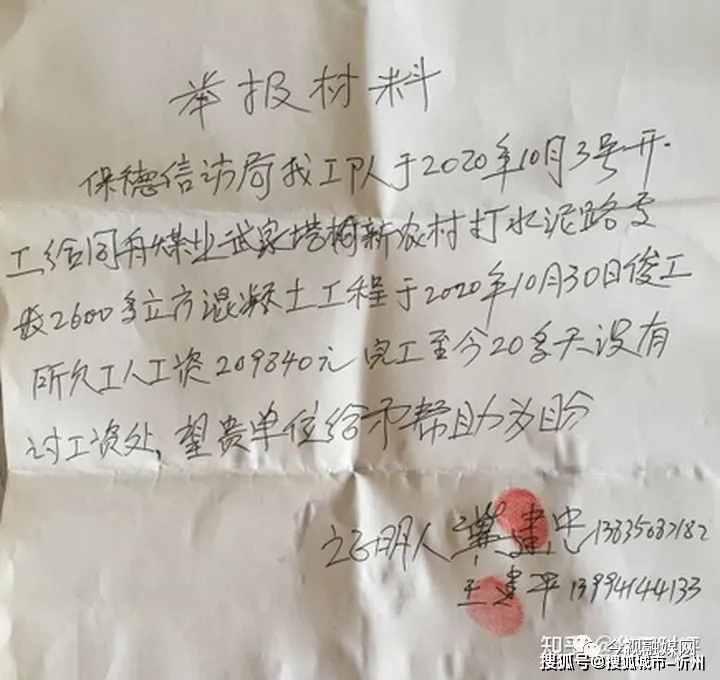 举报材料
保德信访局我工队于2020年10月3号开
工给同舟煤业武家塔 新农村打水泥路更
 2600多立方混凝土工程于2020年10月30日俊工
所欠工人工资209840元完工至今20多天没有
讨工资处,望贵单位给予帮助为盼
证明人 冀建忠13835087182
王建平13994144133
知乎
今视融媒网
搜狐号@搜狐城市-忻州